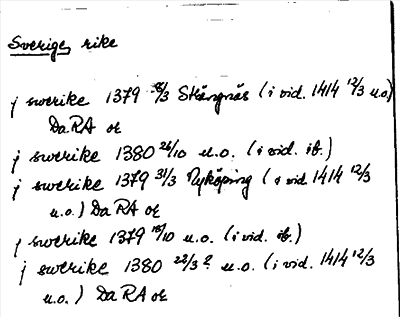 Sverige, rike
j swerike 1379 /3 Strängnäs (i vid. 1414 12/3 u.o.)
DaRA or
j swerike 1380 26/10 u.o. (i vid. ib.)
j swerike 1379 31/3 Nyköping (i vid 1414 12/3
u.o.) DaRA or
j swerike 1379 18/10 u.o. (i vid. ib.)
j swerike 1380 22/3 ? u.o. (i vid. 1414 12/3
u.o.) DaRA or